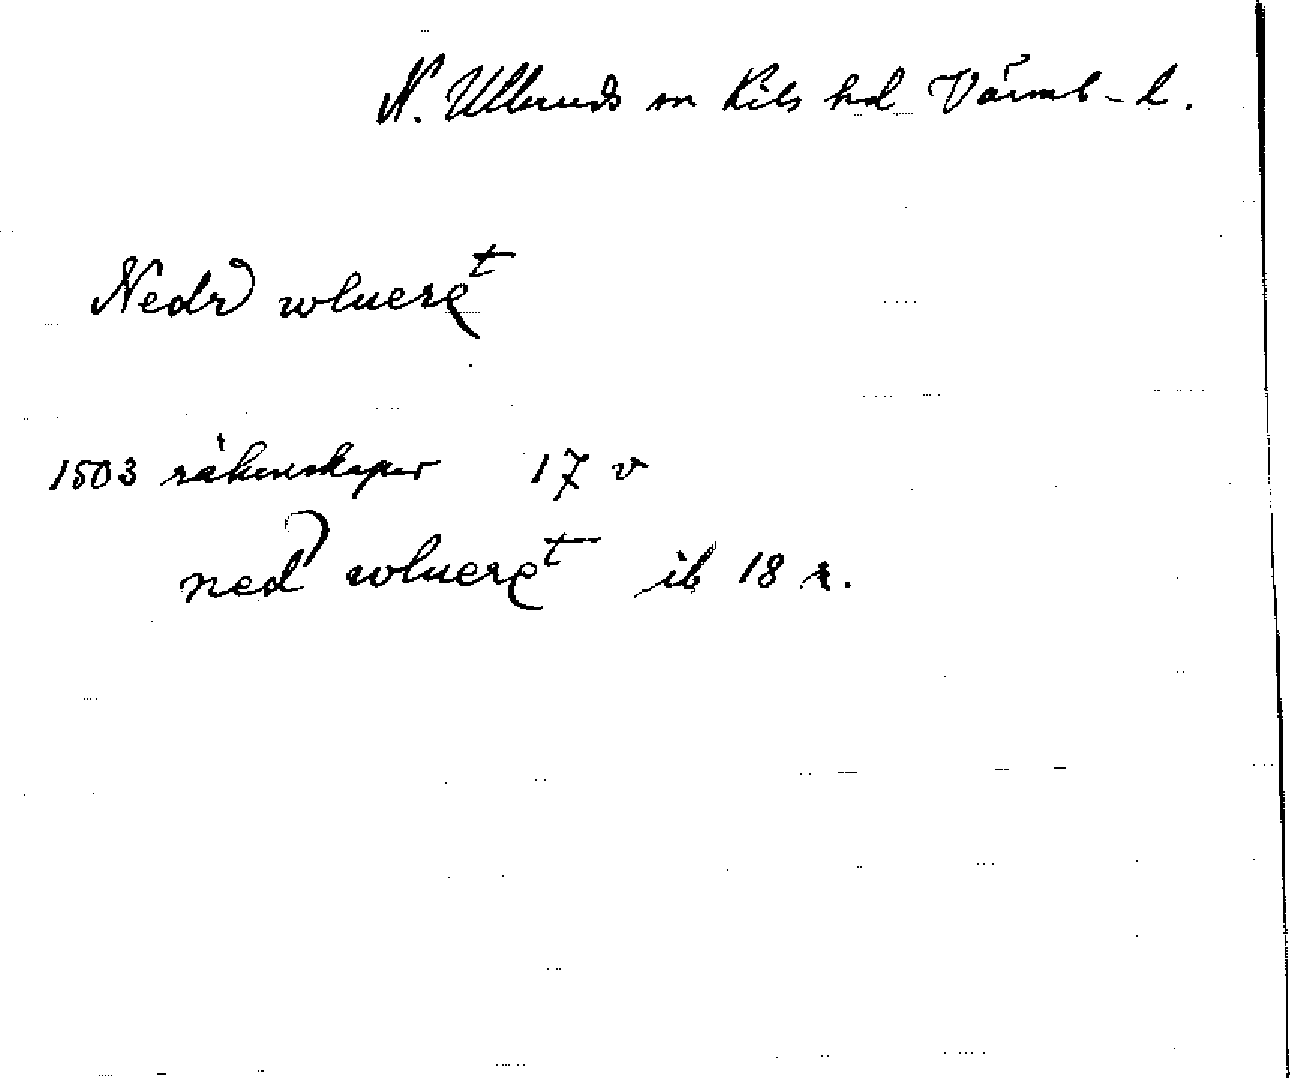 N. Ulleruds sn Kils hd Värml. l.
Nedr wlueret
1503 räkenskaper 17 v
ned wlueret ib 18 r.